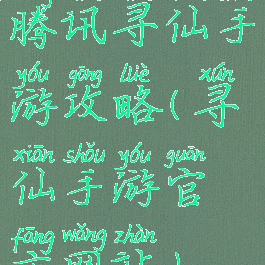 腾讯寻仙手
yóu gōng lüè xún
游攻略(寻
xiān shǒu yóu guān
仙手游官
fāng wǎng zhàn
方网站)